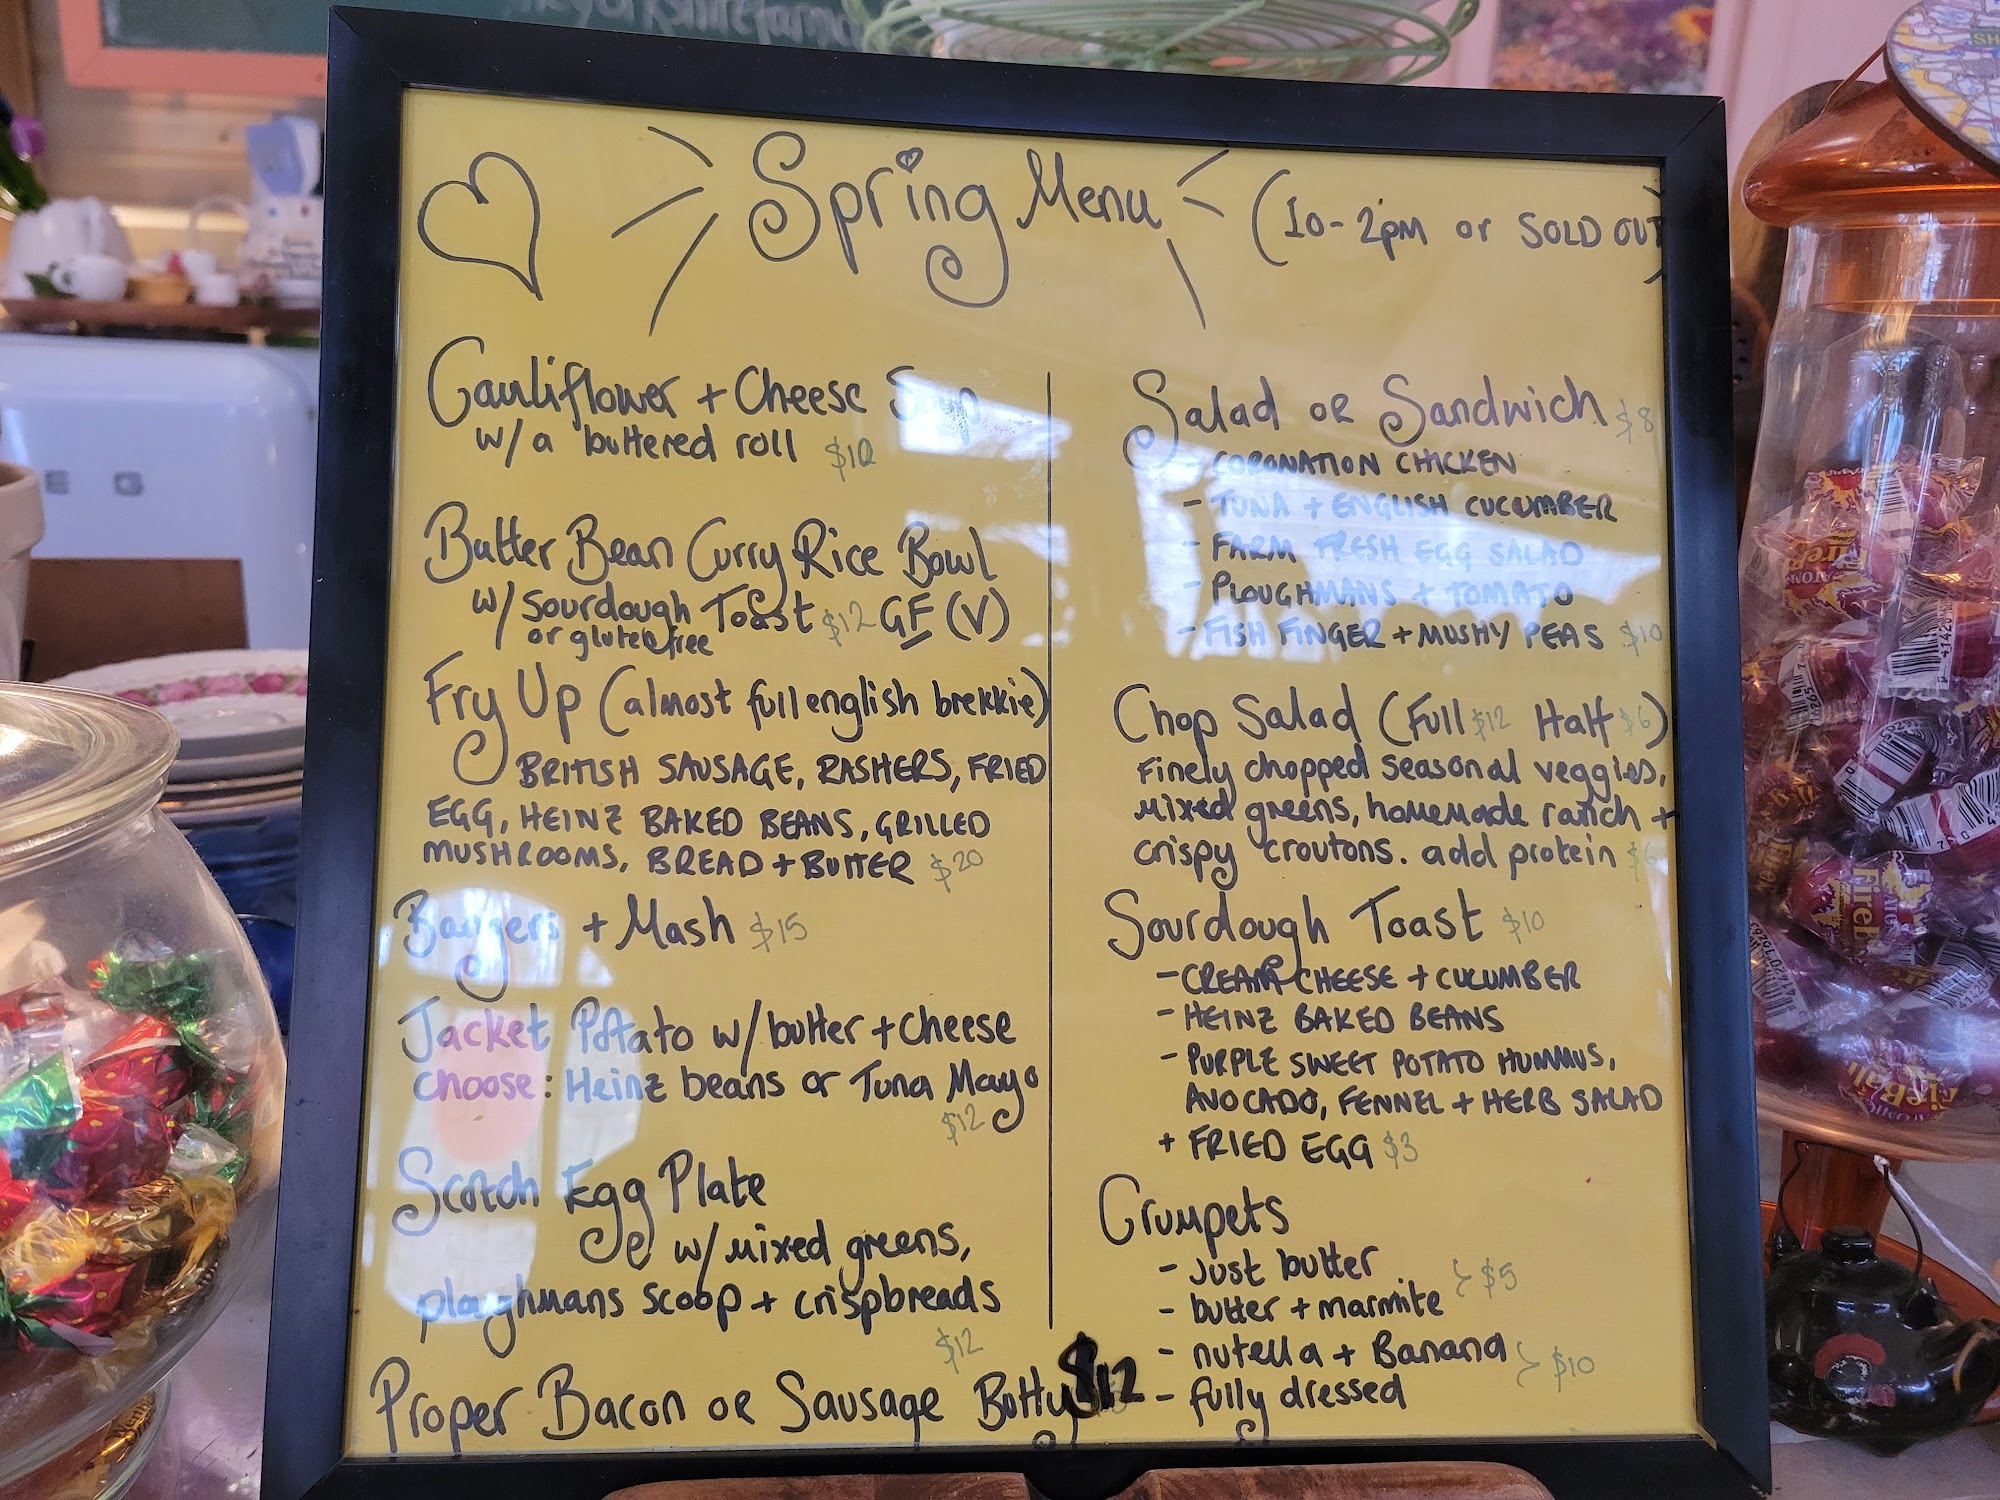 Spring Menu (10-2pm or SOLD OUT)
Cauliflower + Cheese Soup
w/ a buttered roll $10
Butter Bean Curry Rice Bowl
w/ sourdough Toast $12 GF (V)
or gluten free
Fry Up (almost full english brekkie)
BRITISH SAUSAGE, RASHERS, FRIED
EGG, HEINZ BAKED BEANS, GRILLED
MUSHROOMS, BREAD + BUTTER $20
Bangers + Mash $15
Jacket Potato w/ butter + cheese
choose: Heinz beans or Tuna Mayo
$12
Scotch Egg Plate
w/ mixed greens,
ploughmans scoop + crispbreads
$12
Proper Bacon or Sausage Butty $12
Salad or Sandwich $8
- CORONATION CHICKEN
- TUNA + ENGLISH CUCUMBER
- FARM FRESH EGG SALAD
- PLOUGHMANS + TOMATO
- FISH FINGER + MUSHY PEAS $10
Chop Salad (Full $12 Half $6)
Finely chopped seasonal veggies,
mixed greens, homemade ranch +
crispy croutons. add protein $6
Sourdough Toast $10
- CREAM CHEESE + CUCUMBER
- HEINZ BAKED BEANS
- PURPLE SWEET POTATO HUMMUS,
AVOCADO, FENNEL + HERB SALAD
+ FRIED EGG $3
Crumpets
- just butter
- butter + marmite } $5
- nutella + Banana
- fully dressed } $10
E G